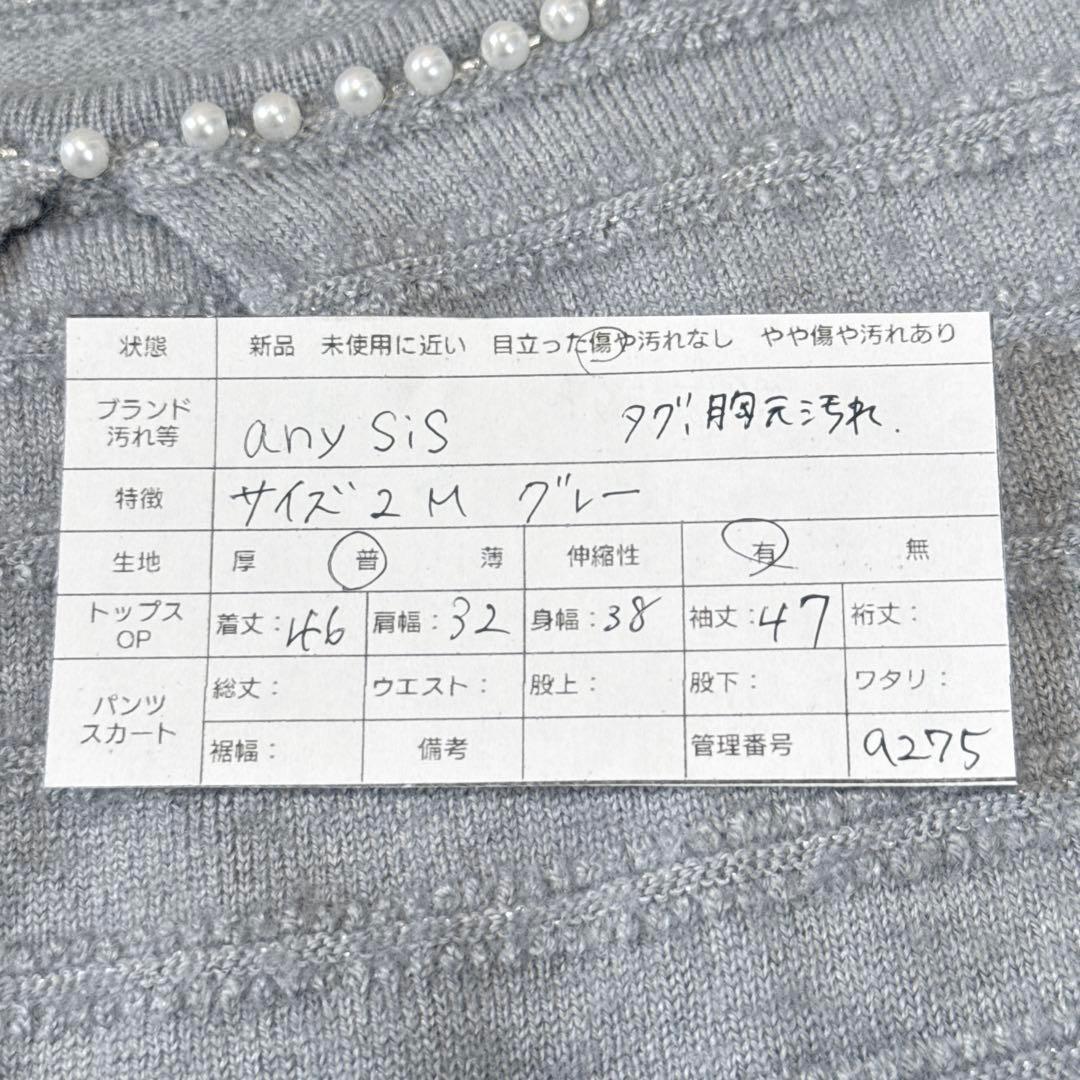 状態 新品 未使用に近い 目立った傷や汚れなし やや傷や汚れあり
ブランド
汚れ等
any SiS タグ、胸元汚れ.
特徴 サイズ2 M グレー
生地 厚 普 薄 伸縮性 有 無
トップス
OP
着丈:46 肩幅:32 身幅:38 袖丈:47 裄丈:
パンツ
スカート
総丈: ウエスト: 股上: 股下: ワタリ:
裾幅: 備考 管理番号 a275